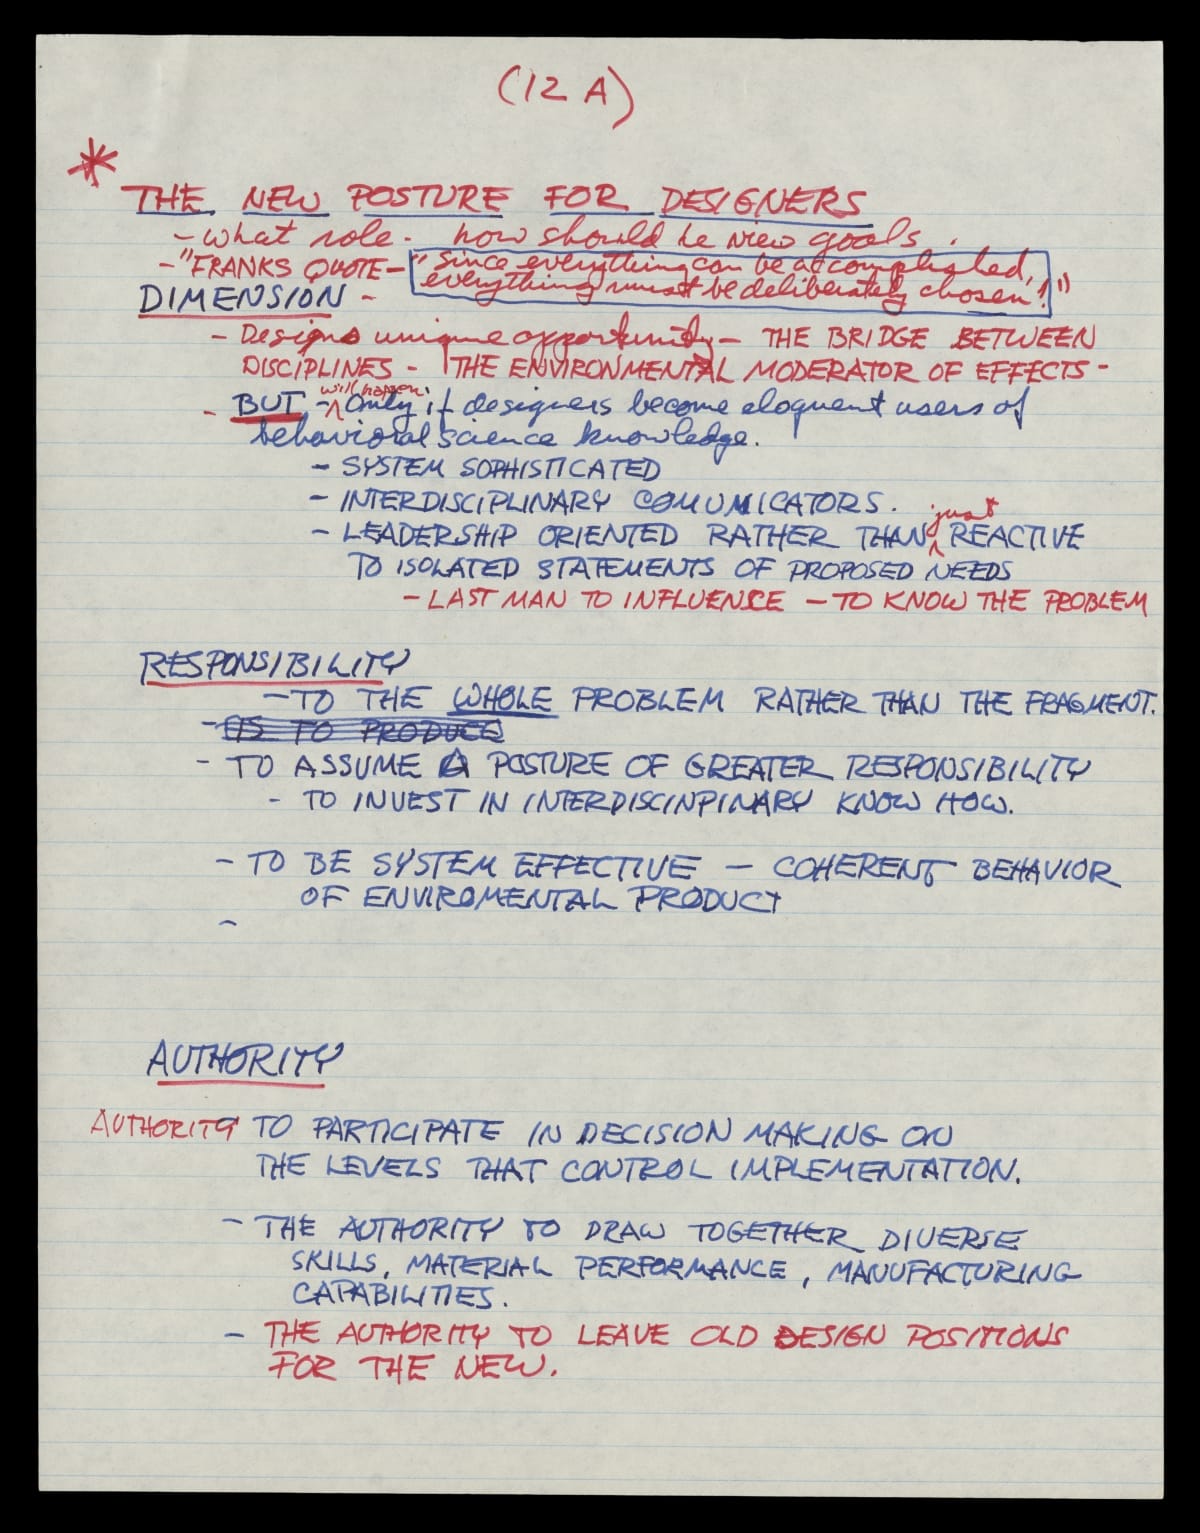 (12 A)
*
THE NEW POSTURE FOR DESIGNERS
- what role - how should he view goals.
- "FRANKS QUOTE - " Since everything can be accomplished,
everything must be deliberately chosen!"
DIMENSION -
- Designs unique opportunity - THE BRIDGE BETWEEN
DISCIPLINES - THE ENVIRONMENTAL MODERATOR OF EFFECTS -
will happen
- BUT - Only if designers become eloquent users of
behavioral science knowledge.
- SYSTEM SOPHISTICATED
- INTERDISCIPLINARY COMUMICATORS.
just
- LEADERSHIP ORIENTED RATHER THAN REACTIVE
TO ISOLATED STATEMENTS OF PROPOSED NEEDS
- LAST MAN TO INFLUENCE - TO KNOW THE PROBLEM
RESPONSIBILITY
- TO THE WHOLE PROBLEM RATHER THAN THE FRAGMENT.
- IS TO PRODUCE
- TO ASSUME A POSTURE OF GREATER RESPONSIBILITY
- TO INVEST IN INTERDISCINPINARY KNOW HOW.
- TO BE SYSTEM EFFECTIVE - COHERENT BEHAVIOR
OF ENVIROMENTAL PRODUCT
-
AUTHORITY
AUTHORITY TO PARTICIPATE IN DECISION MAKING ON
THE LEVELS THAT CONTROL IMPLEMENTATION.
- THE AUTHORITY TO DRAW TOGETHER DIVERSE
SKILLS, MATERIAL PERFORMANCE, MANUFACTURING
CAPABILITIES.
- THE AUTHORITY TO LEAVE OLD DESIGN POSITIONS
FOR THE NEW.